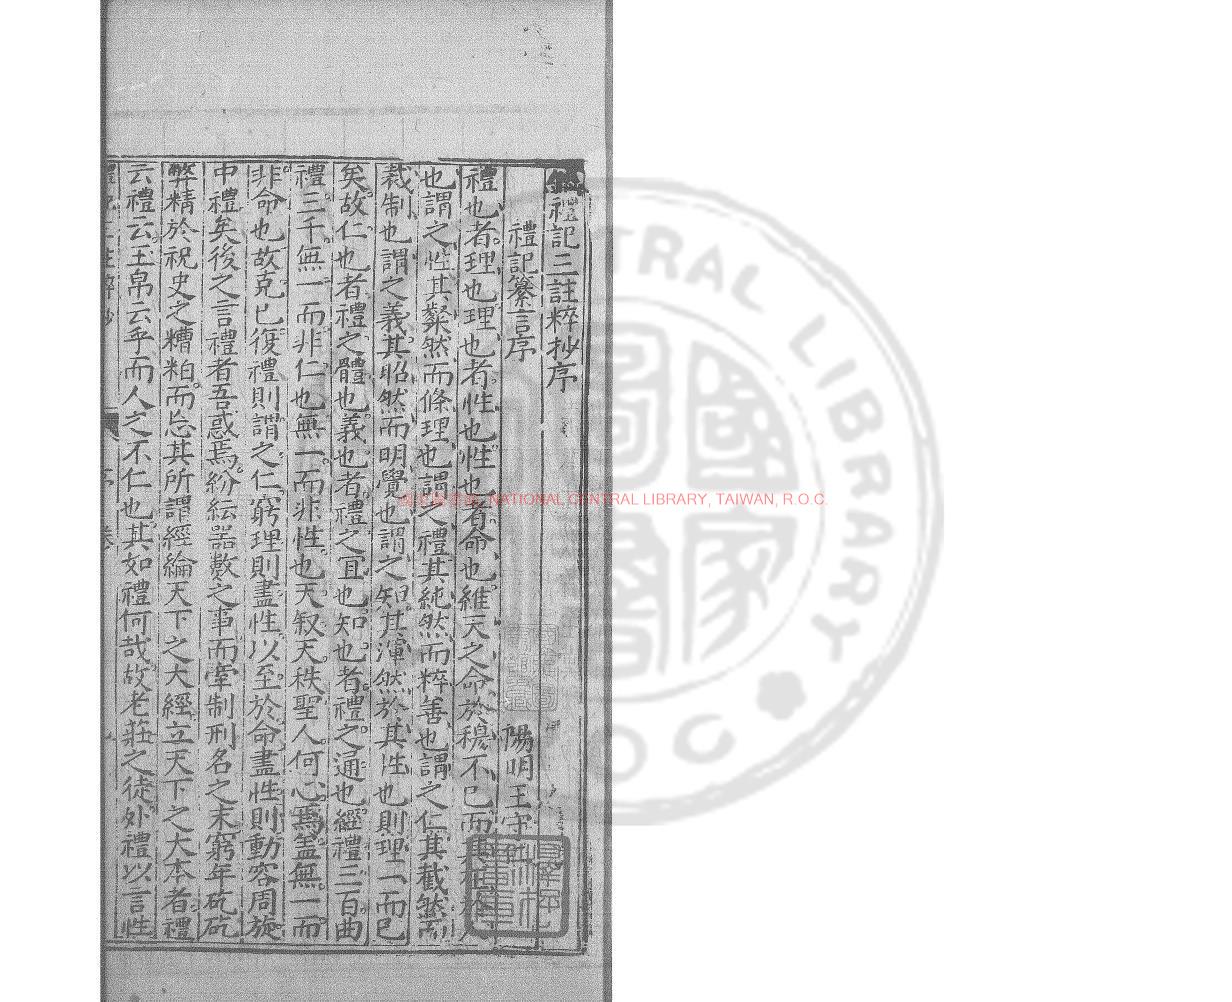 禮記三註粹抄序
禮記纂言序
陽明王守
禮也者理也理也者性也性也者命也維天之命於穆不已而其在於人
也謂之性其粲然而條理也謂之禮其純然而粹善也謂之仁其截然而
裁制也謂之義其昭然而明覺也謂之知其渾然於其性也則理一而已
矣故仁也者禮之體也義也者禮之宜也知也者禮之通也經禮三百曲
禮三千無一而非仁也無一而非性也天叙天秩聖人何心焉盖無一而
非命也故克已復禮則謂之仁窮理則盡性以至於命盡性則動容周旋
中禮矣後之言禮者吾惑焉紛紜器數之事而牽制刑名之末窮年矻矻
弊精於祝史之糟粕而忘其所謂經綸天下之大經立天下之大本者禮
云禮云玉帛云乎而人之不仁也其如禮何哉故老莊之徒外禮以言性
序
NATIONAL CENTRAL LIBRARY, TAIWAN, R.O.C.
CENTRAL LIBRARY
R O C
國家圖書